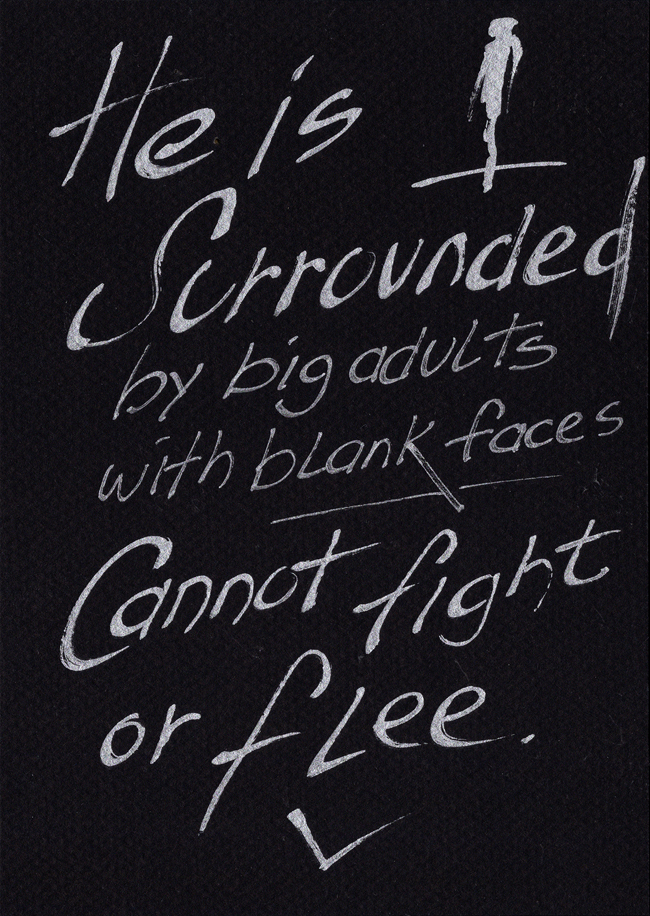 He is
Surrounded
by big adults
with blank faces
Cannot fight
or flee.